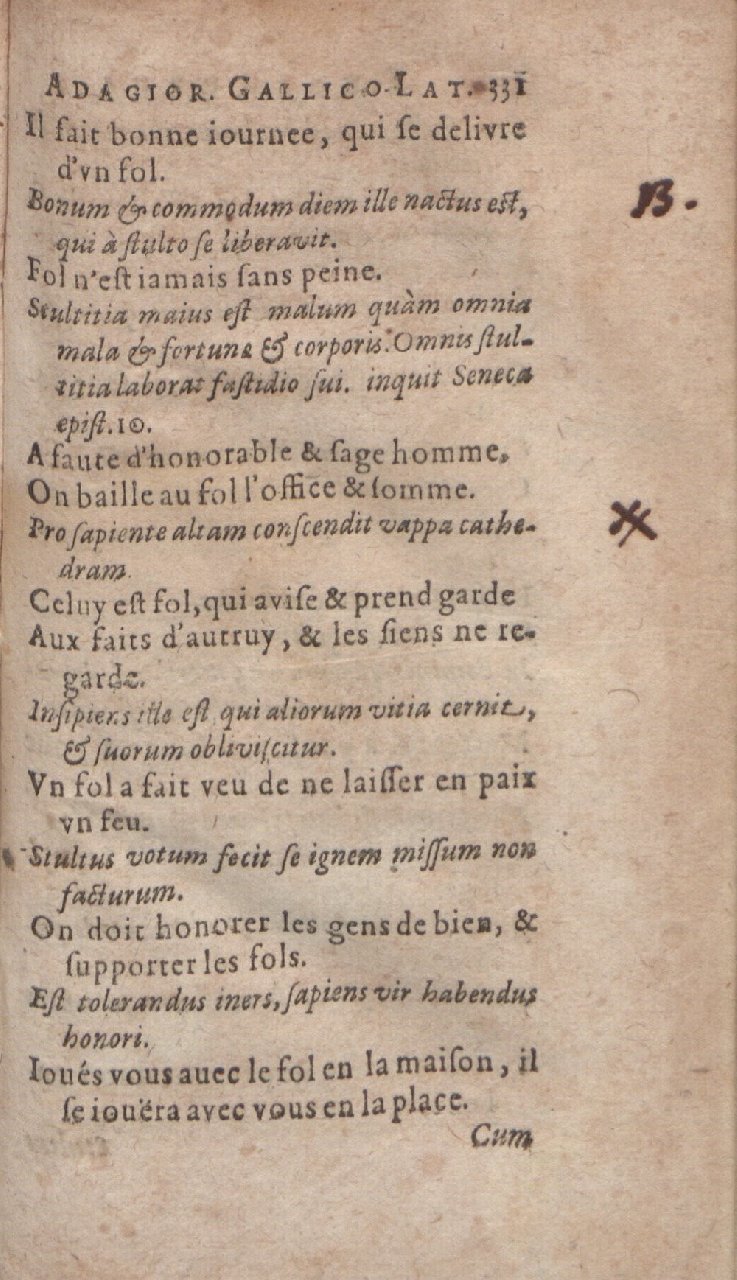 ADAGIOR. GALLICO-LAT. 331
Il fait bonne iournee, qui se delivre
d'vn fol.
Bonum & commodum diem ille nactus est,
B.
qui à stulto se liberavit.
Fol n'est iamais sans peine.
Stultitia maius est malum quàm omnia
mala & fortunæ & corporis. Omnis stul-
titia laborat fastidio sui. inquit Seneca
epist. 10.
A faute d'honorable & sage homme,
On baille au fol l'office & somme.
Pro sapiente altam conscendit vappa cathe-
dram.
Celuy est fol, qui avise & prend garde
Aux faits d'autruy, & les siens ne re-
garde.
Insipiens ille est qui aliorum vitia cernit,
& suorum obliviscitur.
Vn fol a fait veu de ne laisser en paix
vn feu.
Stultus votum fecit se ignem missum non
facturum.
On doit honorer les gens de bien, &
supporter les fols.
Est tolerandus iners, sapiens vir habendus
honori.
Ioués vous auec le fol en la maison, il
se iouëra avec vous en la place.
Cum